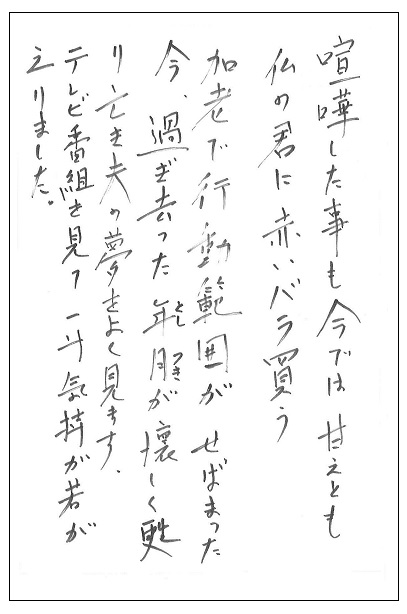 喧嘩した事も今では甘えとも
仏の君に赤いバラ買う
加老で行動範囲がせばまった
今、過ぎ去った年月(としつき)が懐しく甦
り亡き夫の夢をよく見ます、
テレビ番組を見て一寸気持が若が
えりました。